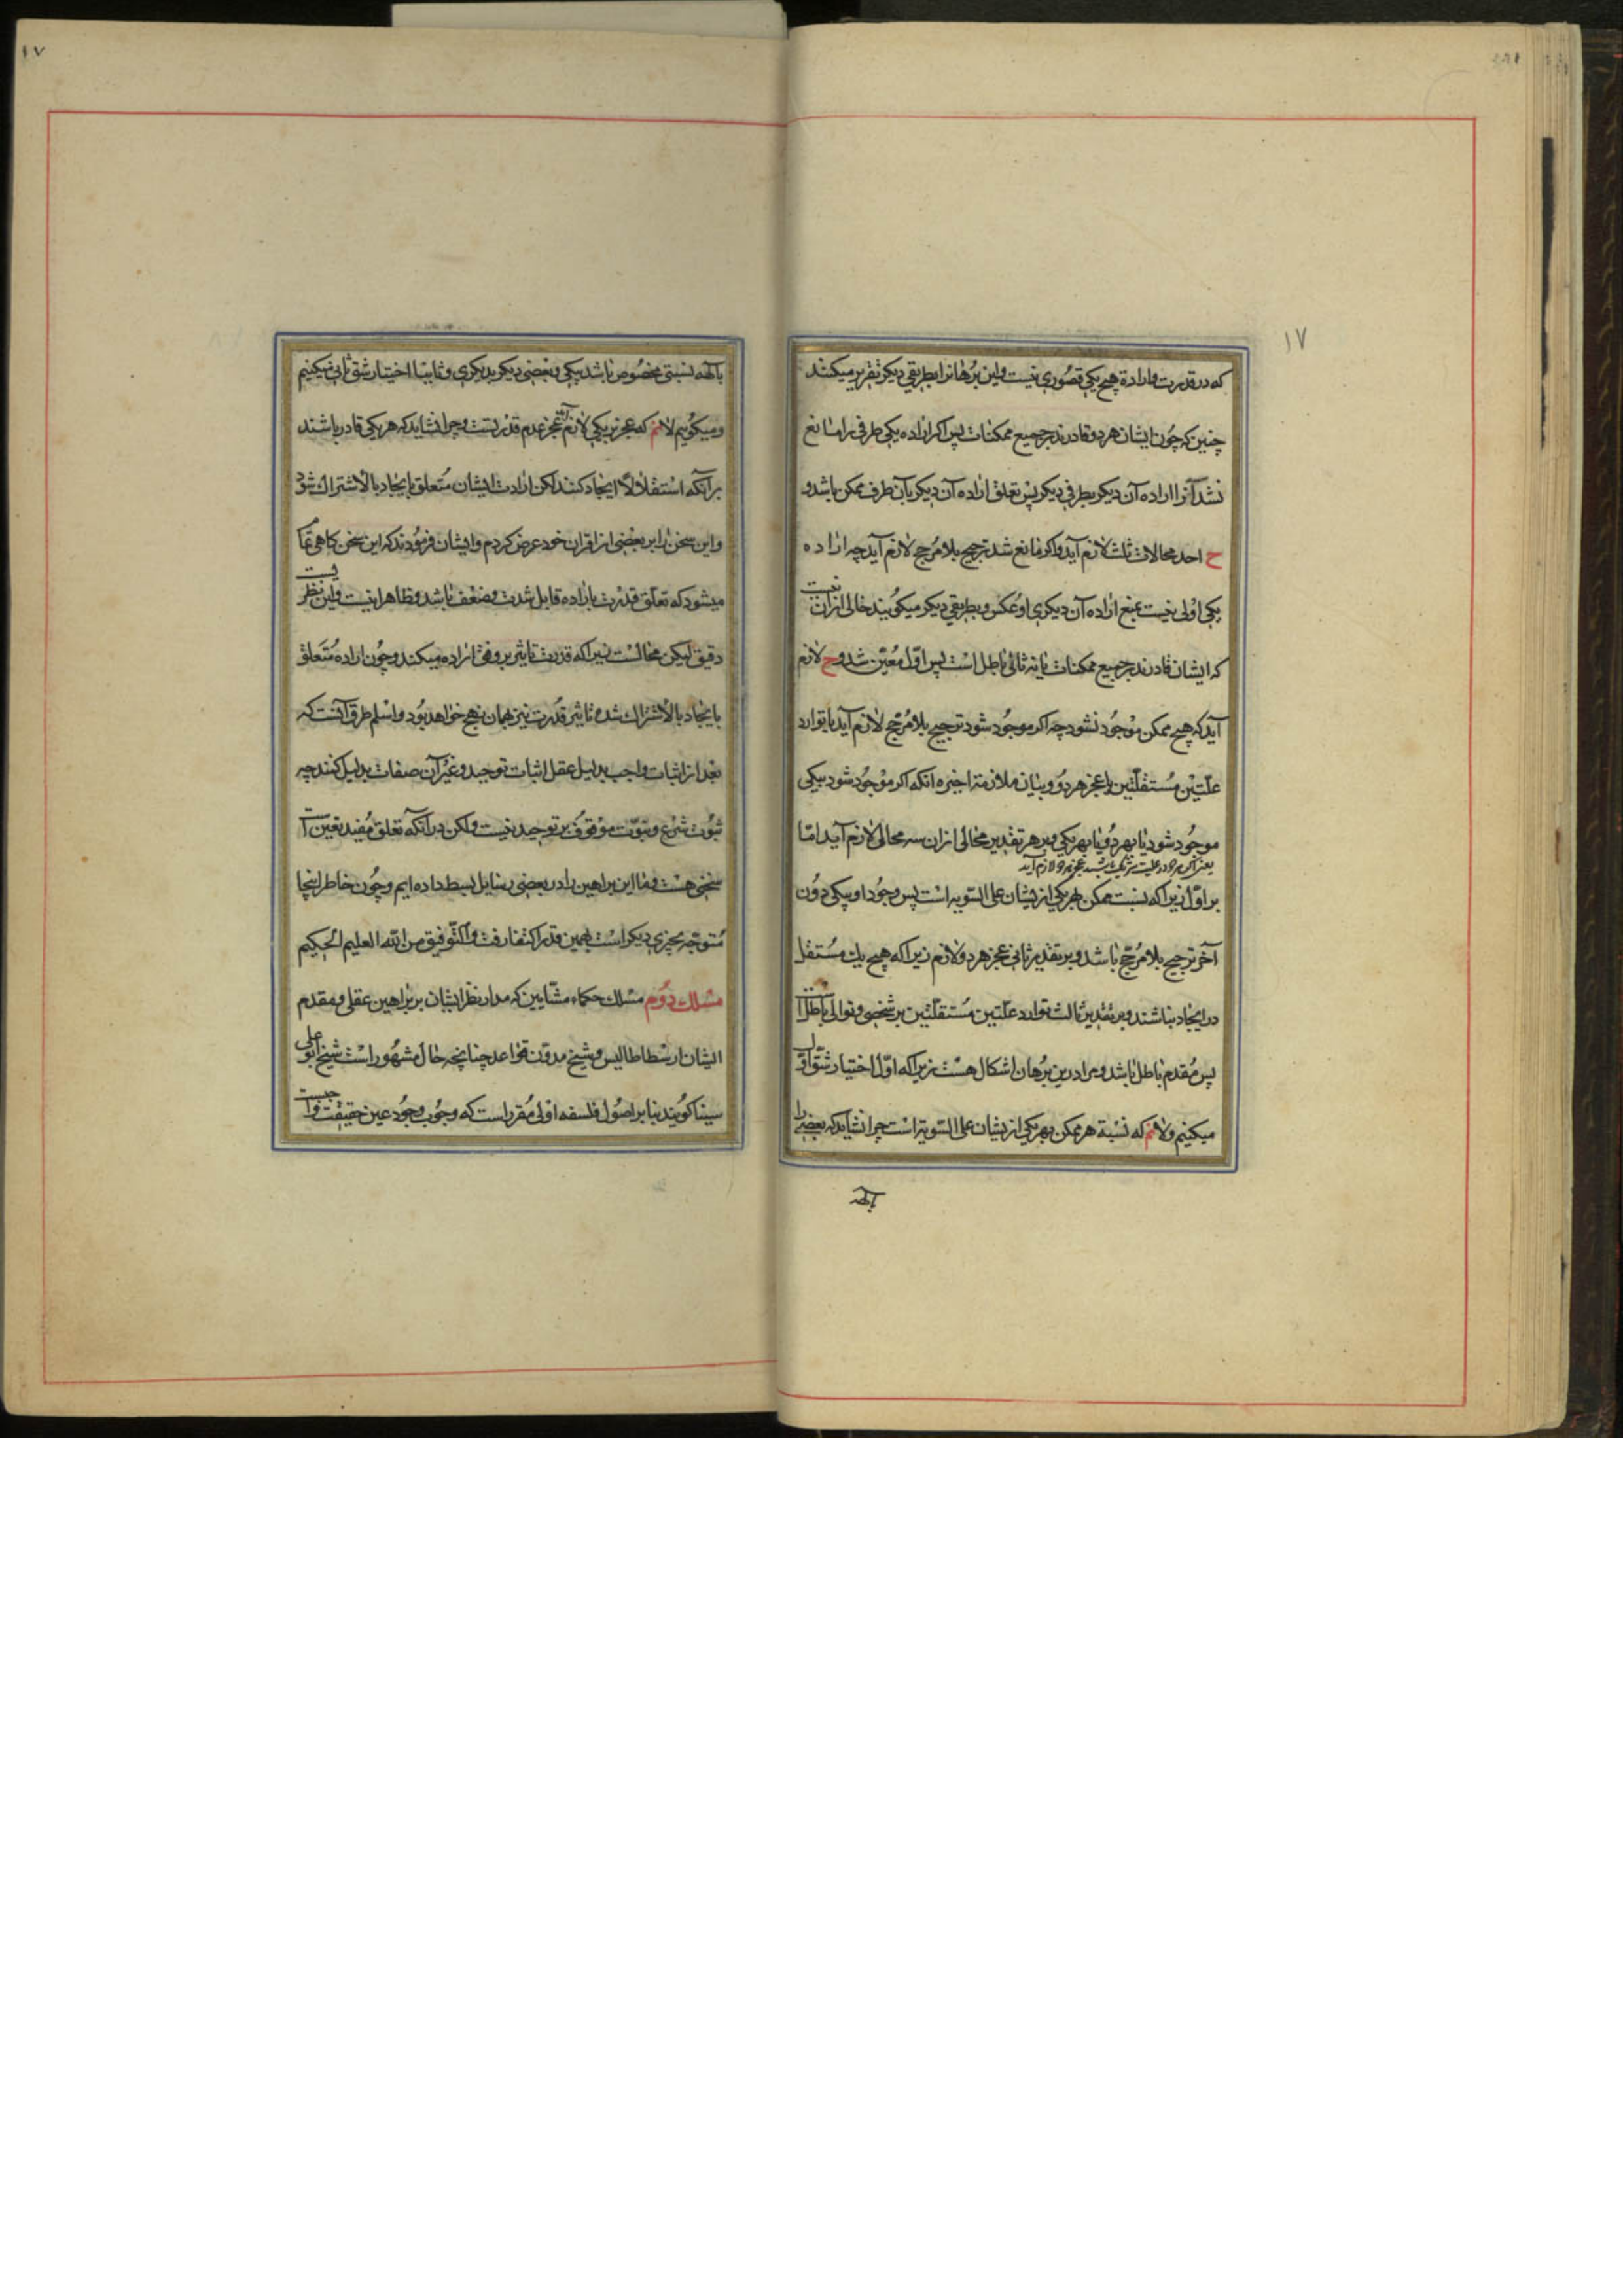 ۱۷
که در قدرت و ارادة هیچ یکی قصوری نیست و این برهانرا بطریقی دیگر تقریر میکنند
چنین که چون ایشان هر دو قادرند بر جمیع ممکنات پس اکر اراده یکی طرفی را مانع
نشد آنرا اراده آن دیکر بطرفی دیکر پس تعلق اراده آن دیکر بآن طرف ممکن باشد و
ح احد محالات ثلث لازم آید و اکر مانع شد ترجیح بلا مرجح لازم آید چه اراده
یکی اولی نیست بمنع اراده آن دیکری او عکس و بطریقی دیکر میکویند خالی ازان نیست
که ایشان قادرند بر جمیع ممکنات یا نه ثانی باطل است پس اول معین شد و ح لازم
آید که هیچ ممکن موجود نشود چه اکر موجود شود ترجیح بلا مرجح لازم آید یا توارد
علتین مستقلتین یا عجز هر دو و بیان ملازمة اخیره آنکه اکر موجود شود بیکی
موجود شود یا بهر دو یا بهر یکی و بر هر تقدیر محالی ازان سه محالی لازم آید امّا
یعنی اکر هر دو در علیت شریک باشند عجز هر دو لازم آید
بر اول زیرا که نسبت ممکن بهر یکی ازیشان علی السویه است پس وجود او بیکی دون
آخر ترجیح بلا مرجح باشد و بر تقدیر ثانی عجز هر دو لازم زیرا که هیچ یک مستقل
در ایجاد نباشند و بر تقدیر ثالث توارد علتین مستقلتین بر شخصی و توالی باطل
پس مقدم باطل باشد و مرا درین برهان اشکال هست زیرا که اول اختیار شق اول
میکنیم و لانم که نسبة هر ممکن بهر یکی ازیشان علی السویة است چرا نشاید که بعضی را
بالهـ
۱۷
بالهـ نسبتی مخصوص باشد بیکی و بعضی دیکر بدیکری و ثانیا اختیار شق ثانی میکنیم
و میکوئیم لانم که عجز بر یکی لازم آید عجز عدم قدرتست و چرا نشاید که هر یکی قادر باشند
بر آنکه استقلالا ایجاد کنند لکن ارادت ایشان متعلق بایجاد بالاشتراک شود
و این سخن را بر بعضی از اقران خود عرض کردم و ایشان فرمودند که این سخن کاهی تمام
میشود که تعلق قدرت باراده قابل شدت و ضعف باشد و ظاهرا نیست و این نظریست
دقیق لیکن محالست زیرا که قدرت تاثیر بر وفق اراده میکند و چون اراده متعلق
بایجاد بالاشتراک شده تاثیر قدرت نیز همان نهج خواهد بود و اسلم طرق آنست که
بعد از اثبات واجب بدلیل عقل اثبات توحید و غیر آن صفات بدلیل کنند چه
ثبوت شرع و نبوّت موقوف بر توحید نیست ولکن در آنکه تعلق مفید تعین
سخنی هست و ما این براهین را در بعضی رسایل بسط داده ایم و چون خاطر اینجا
متوجه بچیزی دیکر است بهمین قدر اکتفا رفت و التوفیق من الله العلیم الحکیم
مسلک دوم مسلک حکماء مشّایین که مدار نظر ایشان بر براهین عقلی و مقدم
ایشان ارسطاطالیس و شیخ مدوّن قواعد چنانچه حال مشهور است شیخ ابو علی
سینا کویند بنا بر اصول فلسفه اولی مقرر است که وجوب وجود عین حقیقت واجبست